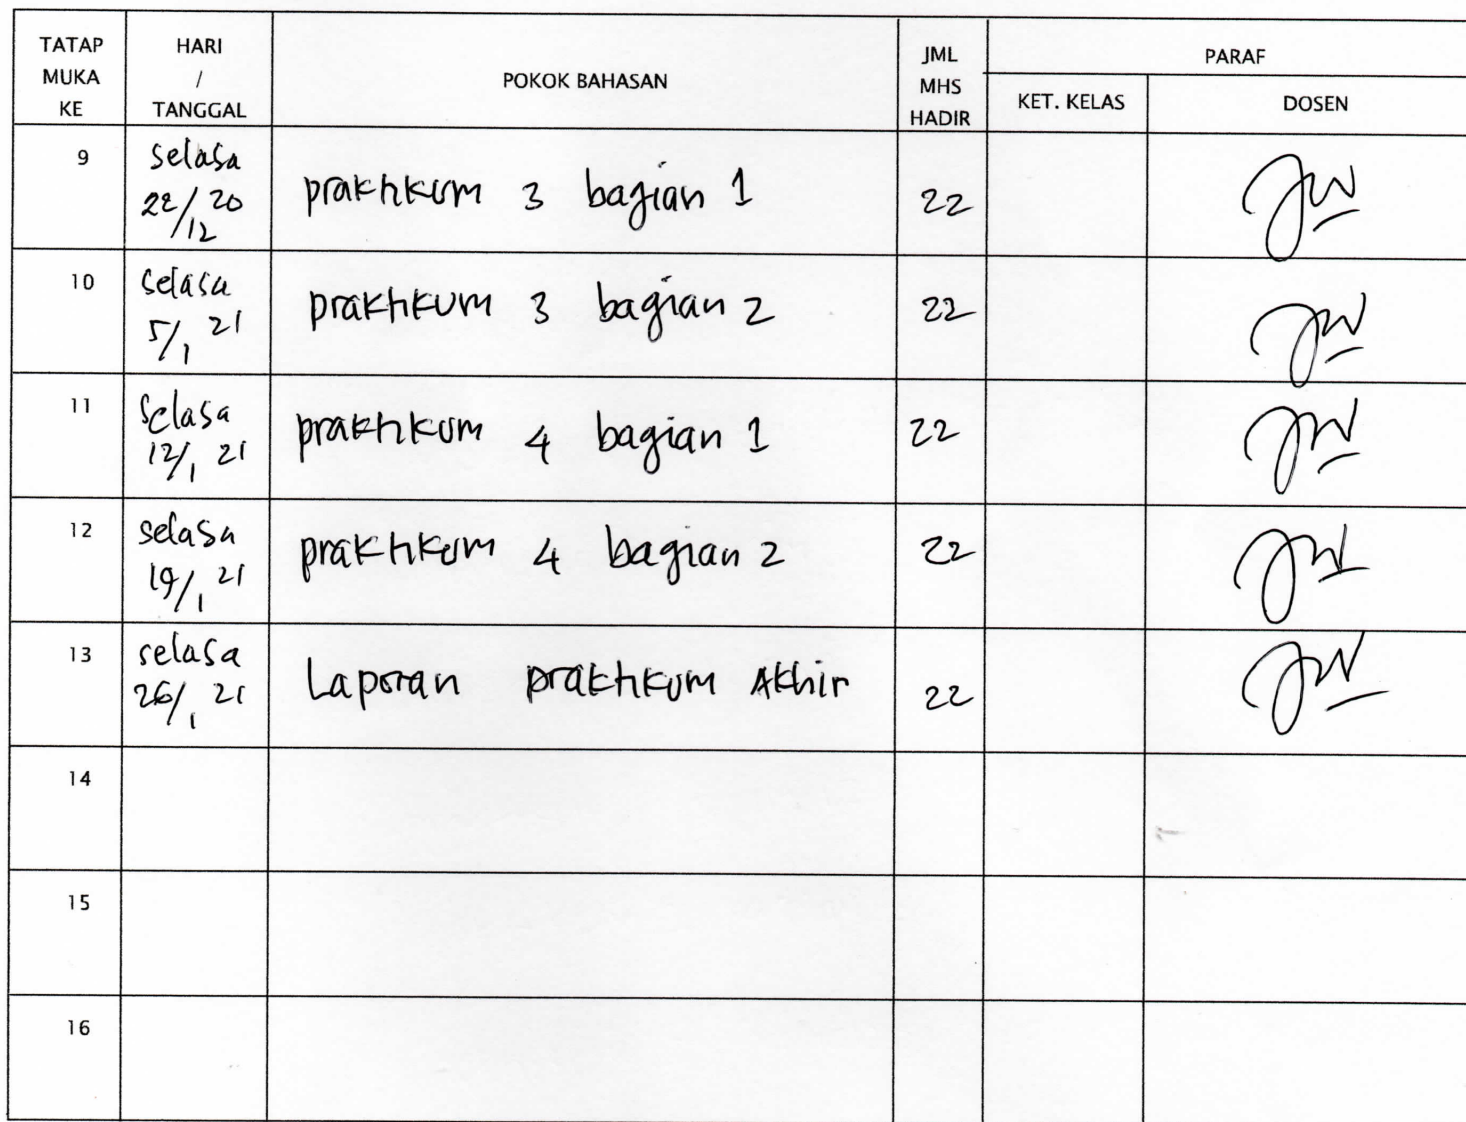 TATAP MUKA KE
HARI / TANGGAL
POKOK BAHASAN
JML MHS HADIR
PARAF
KET. KELAS
DOSEN
9
selasa
22/12 20
praktikum 3 bagian 1
22
10
selasa
5/1 21
praktikum 3 bagian 2
22
11
selasa
12/1 21
praktikum 4 bagian 1
22
12
selasa
19/1 21
praktikum 4 bagian 2
22
13
selasa
26/1 21
Laporan praktikum Akhir
22
14
15
16